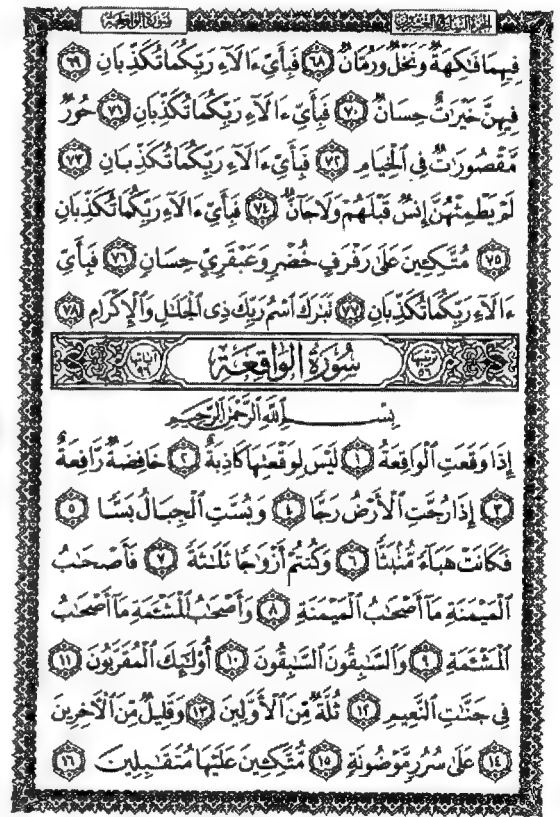 سورة الواقعة الجزء السابع والعشرون
فِيهِمَا فَٰكِهَةٌ وَنَخْلٌ وَرُمَّانٌ ٦٨ فَبِأَيِّ ءَالَآءِ رَبِّكُمَا تُكَذِّبَانِ ٦٩
فِيهِنَّ خَيْرَٰتٌ حِسَانٌ ٧٠ فَبِأَيِّ ءَالَآءِ رَبِّكُمَا تُكَذِّبَانِ ٧١ حُورٌ
مَّقْصُورَٰتٌ فِي ٱلْخِيَامِ ٧٢ فَبِأَيِّ ءَالَآءِ رَبِّكُمَا تُكَذِّبَانِ ٧٣
لَمْ يَطْمِثْهُنَّ إِنسٌ قَبْلَهُمْ وَلَا جَآنٌّ ٧٤ فَبِأَيِّ ءَالَآءِ رَبِّكُمَا تُكَذِّبَانِ
٧٥ مُتَّكِـِٔينَ عَلَىٰ رَفْرَفٍ خُضْرٍ وَعَبْقَرِيٍّ حِسَانٍ ٧٦ فَبِأَيِّ
ءَالَآءِ رَبِّكُمَا تُكَذِّبَانِ ٧٧ تَبَٰرَكَ ٱسْمُ رَبِّكَ ذِي ٱلْجَلَٰلِ وَٱلْإِكْرَامِ ٧٨
ترتيبها ٥٦ سُورَةُ الوَاقِعَةِ آياتها ٩٦
بِسْمِ ٱللَّهِ ٱلرَّحْمَٰنِ ٱلرَّحِيمِ
إِذَا وَقَعَتِ ٱلْوَاقِعَةُ ١ لَيْسَ لِوَقْعَتِهَا كَاذِبَةٌ ٢ خَافِضَةٌ رَّافِعَةٌ
٣ إِذَا رُجَّتِ ٱلْأَرْضُ رَجًّا ٤ وَبُسَّتِ ٱلْجِبَالُ بَسًّا ٥
فَكَانَتْ هَبَآءً مُّنۢبَثًّا ٦ وَكُنتُمْ أَزْوَٰجًا ثَلَٰثَةً ٧ فَأَصْحَٰبُ
ٱلْمَيْمَنَةِ مَآ أَصْحَٰبُ ٱلْمَيْمَنَةِ ٨ وَأَصْحَٰبُ ٱلْمَشْـَٔمَةِ مَآ أَصْحَٰبُ
ٱلْمَشْـَٔمَةِ ٩ وَٱلسَّٰبِقُونَ ٱلسَّٰبِقُونَ ١٠ أُو۟لَٰٓئِكَ ٱلْمُقَرَّبُونَ ١١
فِي جَنَّٰتِ ٱلنَّعِيمِ ١٢ ثُلَّةٌ مِّنَ ٱلْأَوَّلِينَ ١٣ وَقَلِيلٌ مِّنَ ٱلْـَٔاخِرِينَ
١٤ عَلَىٰ سُرُرٍ مَّوْضُونَةٍ ١٥ مُّتَّكِـِٔينَ عَلَيْهَا مُتَقَٰبِلِينَ ١٦